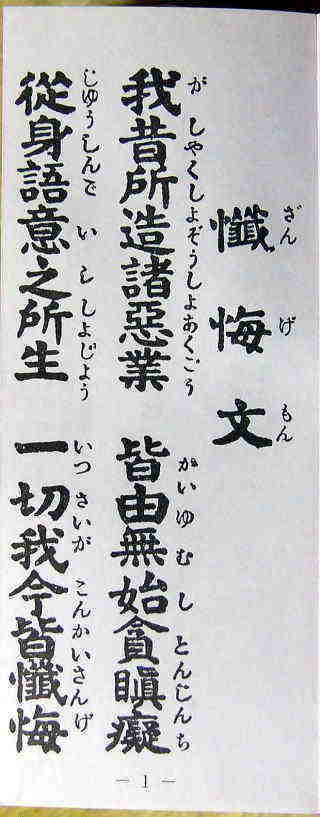 ざん げ もん
懺悔文
が しやくしよぞうしよあくごう かいゆむ し とんじんち
我昔所造諸惡業 皆由無始貪瞋癡
じゆうしんご い し しよじよう いつ さいが こんかいさんげ
從身語意之所生 一切我今皆懺悔
— 1 —